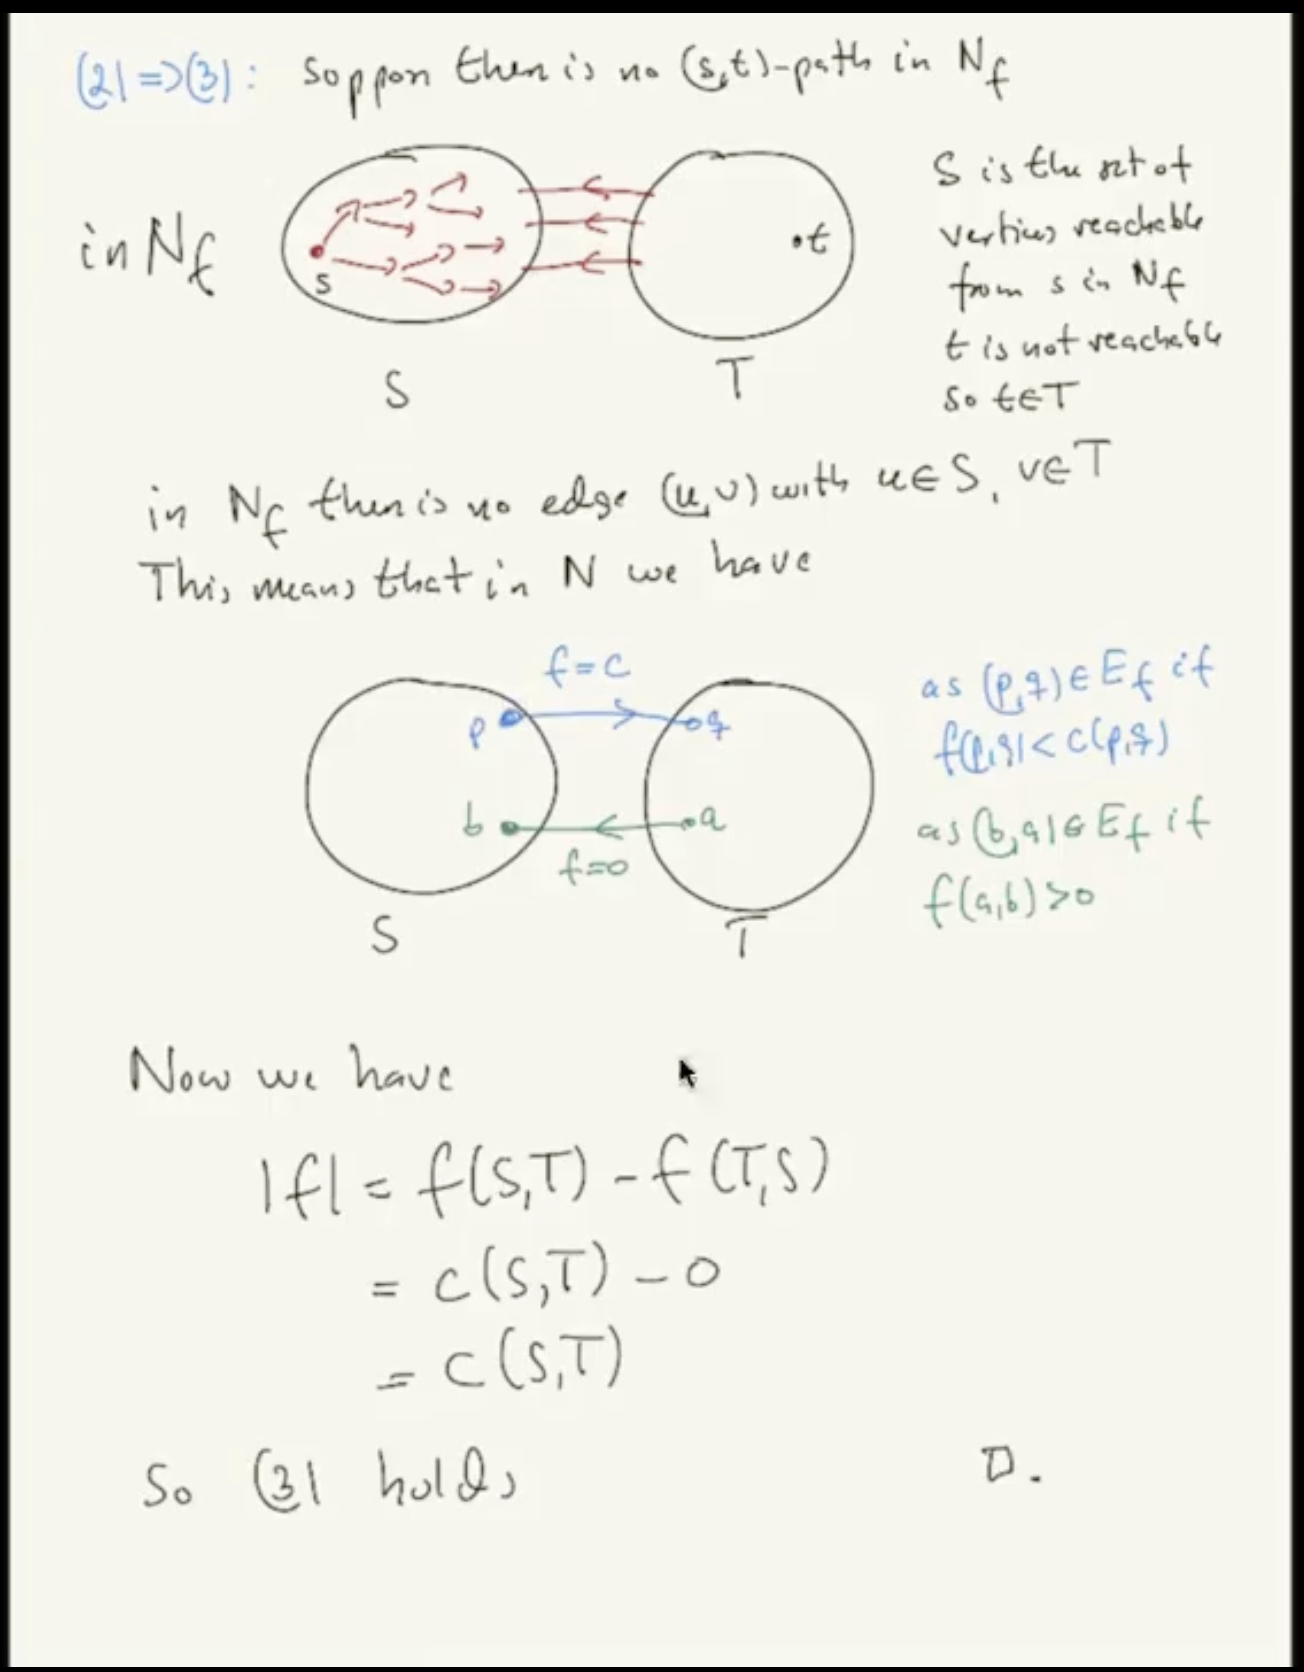 (2) => (3): Suppon then is no (s,t)-path in Nf
in Nf
s
t
S
T
S is the set of
vertices reachable
from s in Nf
t is not reachable
so t∈T
in Nf then is no edge (u,v) with u∈S, v∈T
This means that in N we have
f=c
p
q
b
a
f=0
S
T
as (p,q)∈Ef if
f(p,q)<c(p,q)
as (b,a)∈Ef if
f(a,b)>0
Now we have
|f| = f(S,T) - f(T,S)
= c(S,T) - 0
= c(S,T)
So (3) holds
□.